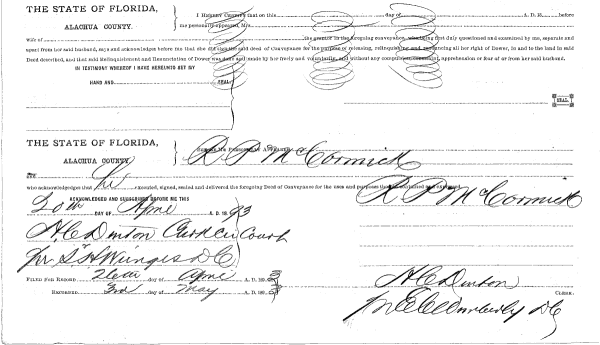 THE STATE OF FLORIDA,
ALACHUA COUNTY.
I HEREBY CERTIFY that on this day of A. D. 18 before
me personally appeared, Mrs.
wife of the grantor in the foregoing conveyance, who being first duly questioned and examined by me, separate and
apart from her said husband, says and acknowledges before me that she did the said deed of Conveyance for the purpose of releasing, relinquishing and renouncing all her right of Dower, in and to the land in said
Deed described, and that said Relinquishment and Renunciation of Dower was done and made by her freely and voluntarily, and without any compulsion, constraint, apprehension or fear of or from her said husband.
IN TESTIMONY WHEREOF I HAVE HEREUNTO SET MY
HAND AND SEAL
SEAL.
THE STATE OF FLORIDA,
ALACHUA COUNTY.
R P McCormick
who acknowledges that he executed, signed, sealed and delivered the foregoing Deed of Conveyance for the uses and purposes
R P McCormick
ACKNOWLEDGED AND SUBSCRIBED BEFORE ME THIS
20th DAY OF April A. D. 1893
H C Denton Clerk Cir Court
per D C
FILED FOR RECORD 26th day of April A. D. 189
RECORDED 3rd day of May A. D. 189
H C Denton
CLERK.
D C